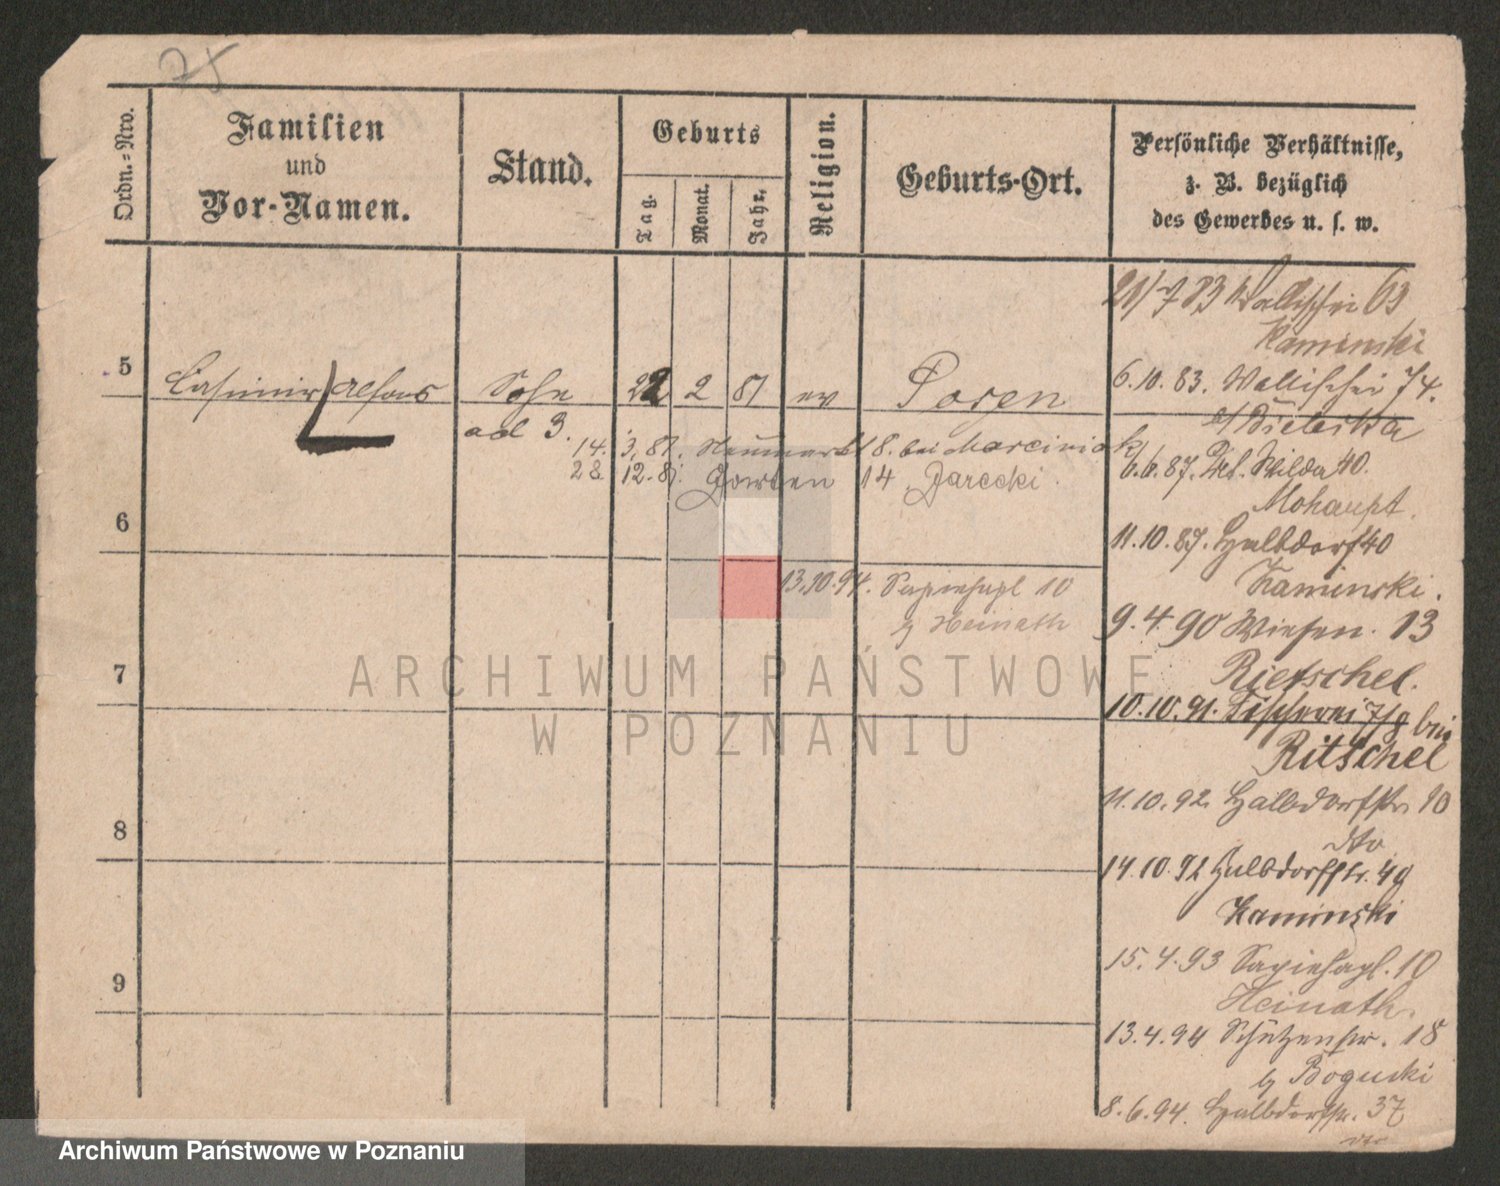 Ordn.=Nro.
Familien
und
Vor-Namen.
Stand.
Geburts
Tag.
Monat.
Jahr.
Religion.
Geburts-Ort.
Persönliche Verhältnisse,
z. B. bezüglich
des Gewerbes u. s. w.
21/7 83 Wallischei 63
Kaminski
5
Casimir Alfons
Sohn
22
2
81
ev
Posen
6.10.83. Wallischei 74.
ad 3.
14. 3. 81. Neumarkt 18. bei Marciniak
28 12. 8 Garten 14 Jarecki
6.6.87. Wilda 40.
Mohaupt.
6
11.10.87. Halbdorf 40
Kaminski.
13.10.94. Sapiehapl 10
Heinath
9.4.90 Wiesen. 13
Rietschel.
7
10.10.91. Fischerei 7/8 bei
Ritschel
11.10.92. Halbdorfstr. 10
dto
8
14.10.92 Halbdorfstr. 49
Kaminski
15.4.93 Sapiehapl. 10
Heinath.
9
13.4.94 Schützenstr. 18
b Bogucki
8.6.94. Halbdorfstr. 37
dto
ARCHIWUM PAŃSTWOWE
W POZNANIU
Archiwum Państwowe w Poznaniu